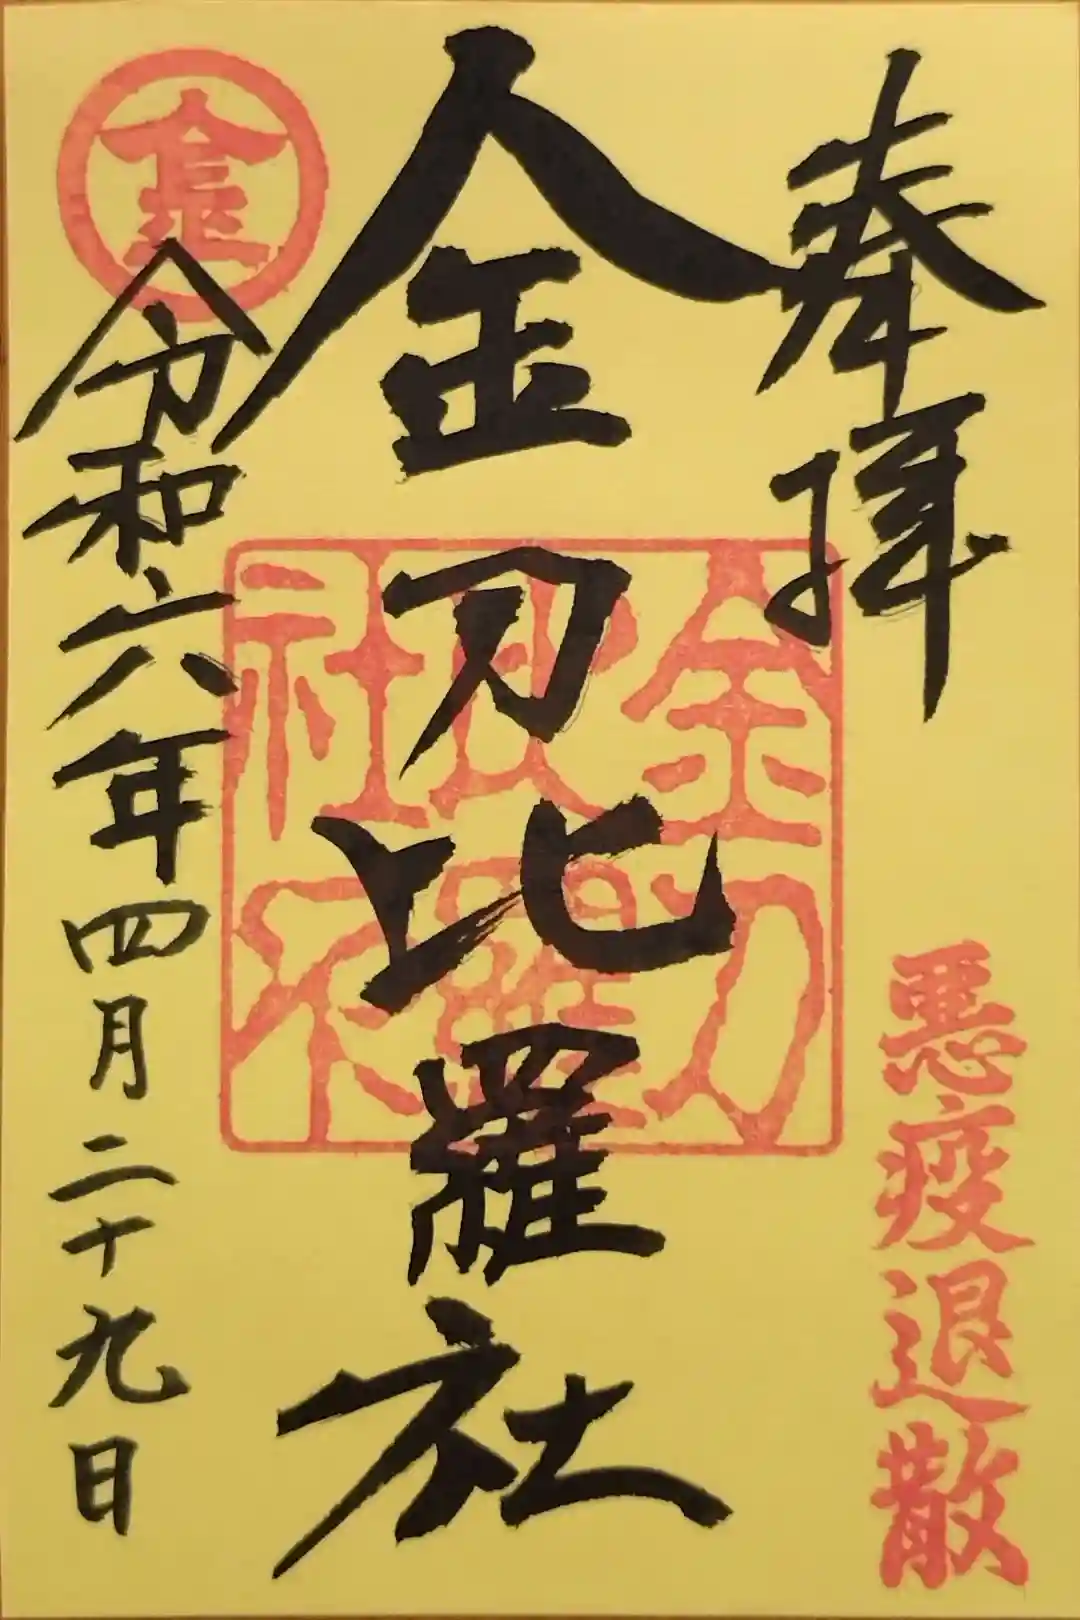 奉拝
悪疫退散
金刀比羅社
金刀比羅社
令和六年四月二十九日